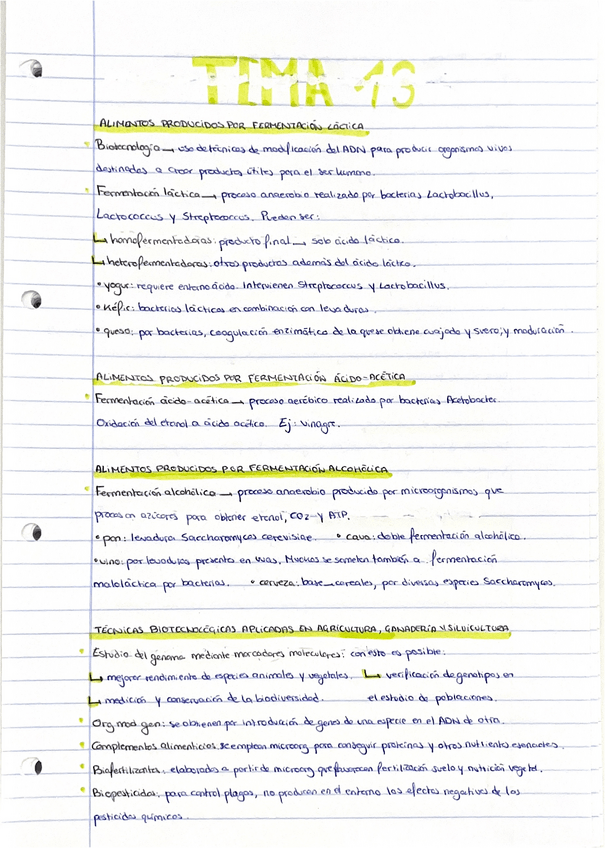 TEMA 13
ALIMENTOS PRODUCIDOS POR FERMENTACIÓN LÁCTICA
Biotecnología → uso de técnicas de modificación del ADN para producir organismos vivos
destinados a crear productos útiles para el ser humano.
Fermentación láctica → proceso anaerobio realizado por bacterias Lactobacillus,
Lactococcus y Streptococcus. Pueden ser:
↳ homofermentadoras: producto final → solo ácido láctico.
↳ heterofermentadoras: otros productos además del ácido láctico.
• yogur: requiere entorno ácido. Intervienen Streptococcus y Lactobacillus.
• Kéfir: bacterias lácticas en combinación con levaduras.
• queso: por bacterias, coagulación enzimática de la que se obtiene cuajada y suero, y maduración.
ALIMENTOS PRODUCIDOS POR FERMENTACIÓN ÁCIDO-ACÉTICA
Fermentación ácido-acética → proceso aeróbico realizado por bacterias Acetobacter.
Oxidación del etanol a ácido acético. Ej: vinagre.
ALIMENTOS PRODUCIDOS POR FERMENTACIÓN ALCOHÓLICA
Fermentación alcohólica → proceso anaerobio producido por microorganismos que
procesan azúcares para obtener etanol, CO2 y ATP.
• pan: levadura Saccharomyces cerevisiae. • cava: doble fermentación alcohólica.
• vino: por levaduras presente en uvas, Muchos se someten también a fermentación
maloláctica por bacterias. • cerveza: base → cereales, por diversas especies Saccharomyces.
TÉCNICAS BIOTECNOLÓGICAS APLICADAS EN AGRICULTURA, GANADERÍA Y SILVICULTURA
Estudio del genoma mediante marcadores moleculares: con esto es posible:
↳ mejorar rendimiento de especies animales y vegetales. ↳ verificación de genotipos en
↳ medición y conservación de la biodiversidad. el estudio de poblaciones.
Org mod gen: se obtienen por introducción de genes de una especie en el ADN de otra.
Complementos alimenticios: se emplean microorg para conseguir proteínas y otros nutrientes esenciales.
Biofertilizantes: elaborados a partir de microorg que favorecen fertilización suelo y nutrición vegetal.
Biopesticidas: para control plagas, no producen en el entorno los efectos negativos de los
pesticidas químicos.